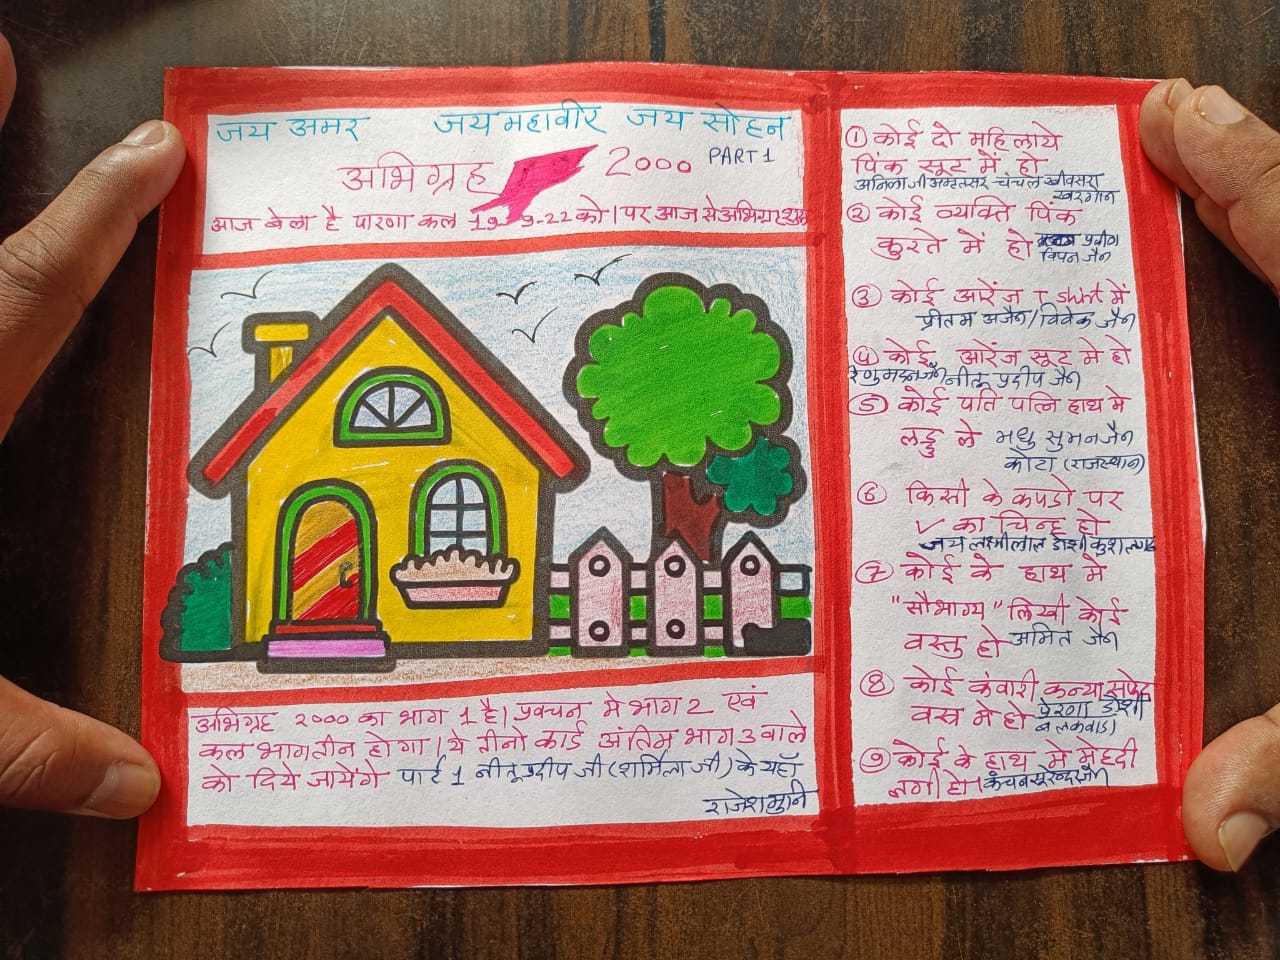 जय अमर जय महावीर जय सोहन
अभिग्रह 2000 PART 1
आज बेला है पारणा कल 19-9-22 को । पर आज से अभिग्रह शुरू
अभिग्रह २००० का भाग 1 है। प्रवचन मे भाग 2 एवं
कल भाग तीन होगा । ये तीनो कार्ड अंतिम भाग 3 वाले
को दिये जायेंगे पार्ट 1 नीलू प्रदीप जी (शर्मिला जी) के यहाँ
राजेश मुनि
① कोई दो महिलाये
पिंक सूट में हो
अनिला जी अमृतसर चंचल खींवसरा
खरगोन
② कोई व्यक्ति पिंक
कुरते में हो प्रवीण
विपन जैन
③ कोई आरेंज T Shirt में
प्रीतम जैन/विवेक जैन
④ कोई आरेंज सूट मे हो
रेणु मदन जैन नीलू प्रदीप जैन
⑤ कोई पति पत्नि हाथ मे
लड्डु ले मधु सुमन जैन
कोटा (राजस्थान)
⑥ किसी के कपडो पर
✓ का चिन्ह हो
जय लक्ष्मीलाल डोशी कुशलगढ
⑦ कोई के हाथ मे
"सौभाग्य" लिखी कोई
वस्तु हो अमित जैन
⑧ कोई कंवारी कन्या सफेद
वस्त्र मे हो प्रेरणा डोशी
⑨ कोई के हाथ मे मेहदी
लगी हो। कंचन सुरेन्द्र जैन